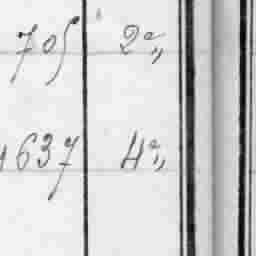 705 2ª„
1637 4ª„